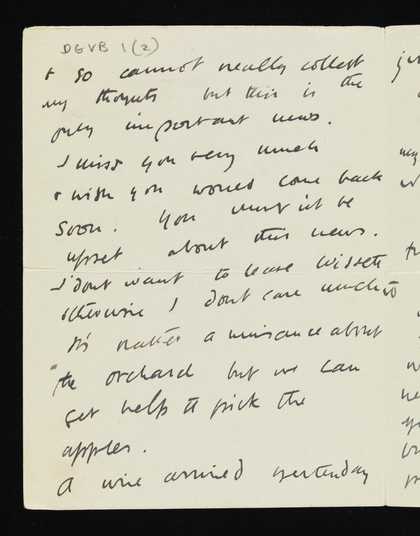 DGVB 1(2)
& so cannot really collect
my thoughts but this is the
only important news.
I miss you very much
& wish you would come back
soon. You must not be
upset about this news.
I dont want to leave Wissett
otherwise I dont care much
Its rather a nuisance about
the orchard but we can
get help to pick the
apples.
A wire arrived yesterday